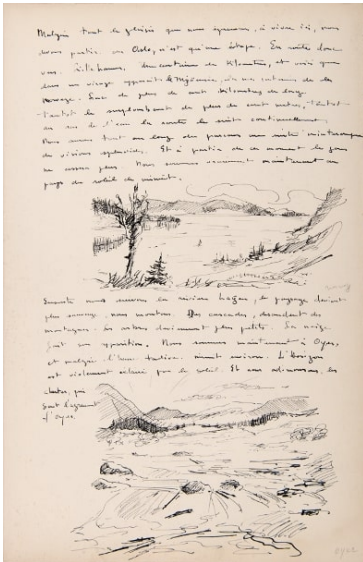 Malgré tout le plaisir que nous éprouvons, à vivre ici, nous
devons partir. Oslo, n'est qu'une étape. En route donc
vers Lillehammer,
dans un virage apparaît le Mjösa,
voyage. Sur plus de cent kilomètres de long
tantôt la surplombant de plus de cent mètres, tantôt
au ras de l'eau la route le suit continuellement.
Nous avons tout au long du parcours une suite ininterrompue
de visions splendides. Et à partir de ce moment le jour
ne cessera plus. Nous sommes vraiment maintenant au
pays du soleil de minuit.
Ensuite nous suivons la rivière Lagen, le paysage devient
plus sauvage, nous montons. Des cascades, descendent des
montagnes. Les arbres deviennent plus petits. La neige
fait son apparition. Nous sommes maintenant à Oyer,
et malgré l'heure tardive, minuit environ. L'horizon
est violemment éclairé par le soleil. Et nous admirons, les
chutes, qui
sont
d'Oyer.